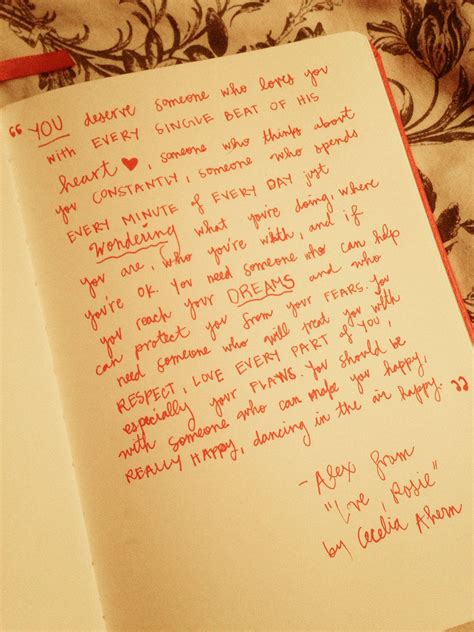 “ YOU deserve someone who loves you
with EVERY SINGLE BEAT OF HIS
heart ♥, someone who thinks about
you CONSTANTLY, someone who spends
EVERY MINUTE of EVERY DAY just
Wondering what you're doing, where
you are, who you're with, and if
you're OK. You need someone who can help
you reach your DREAMS and who
can protect you from your FEARS. You
need someone who will treat you with
RESPECT, LOVE EVERY PART OF YOU,
especially your FLAWS. You should be
with someone who can make you happy,
REALLY HAPPY, dancing in the air happy. ”
- Alex from
"Love, Rosie"
by Cecelia Ahern